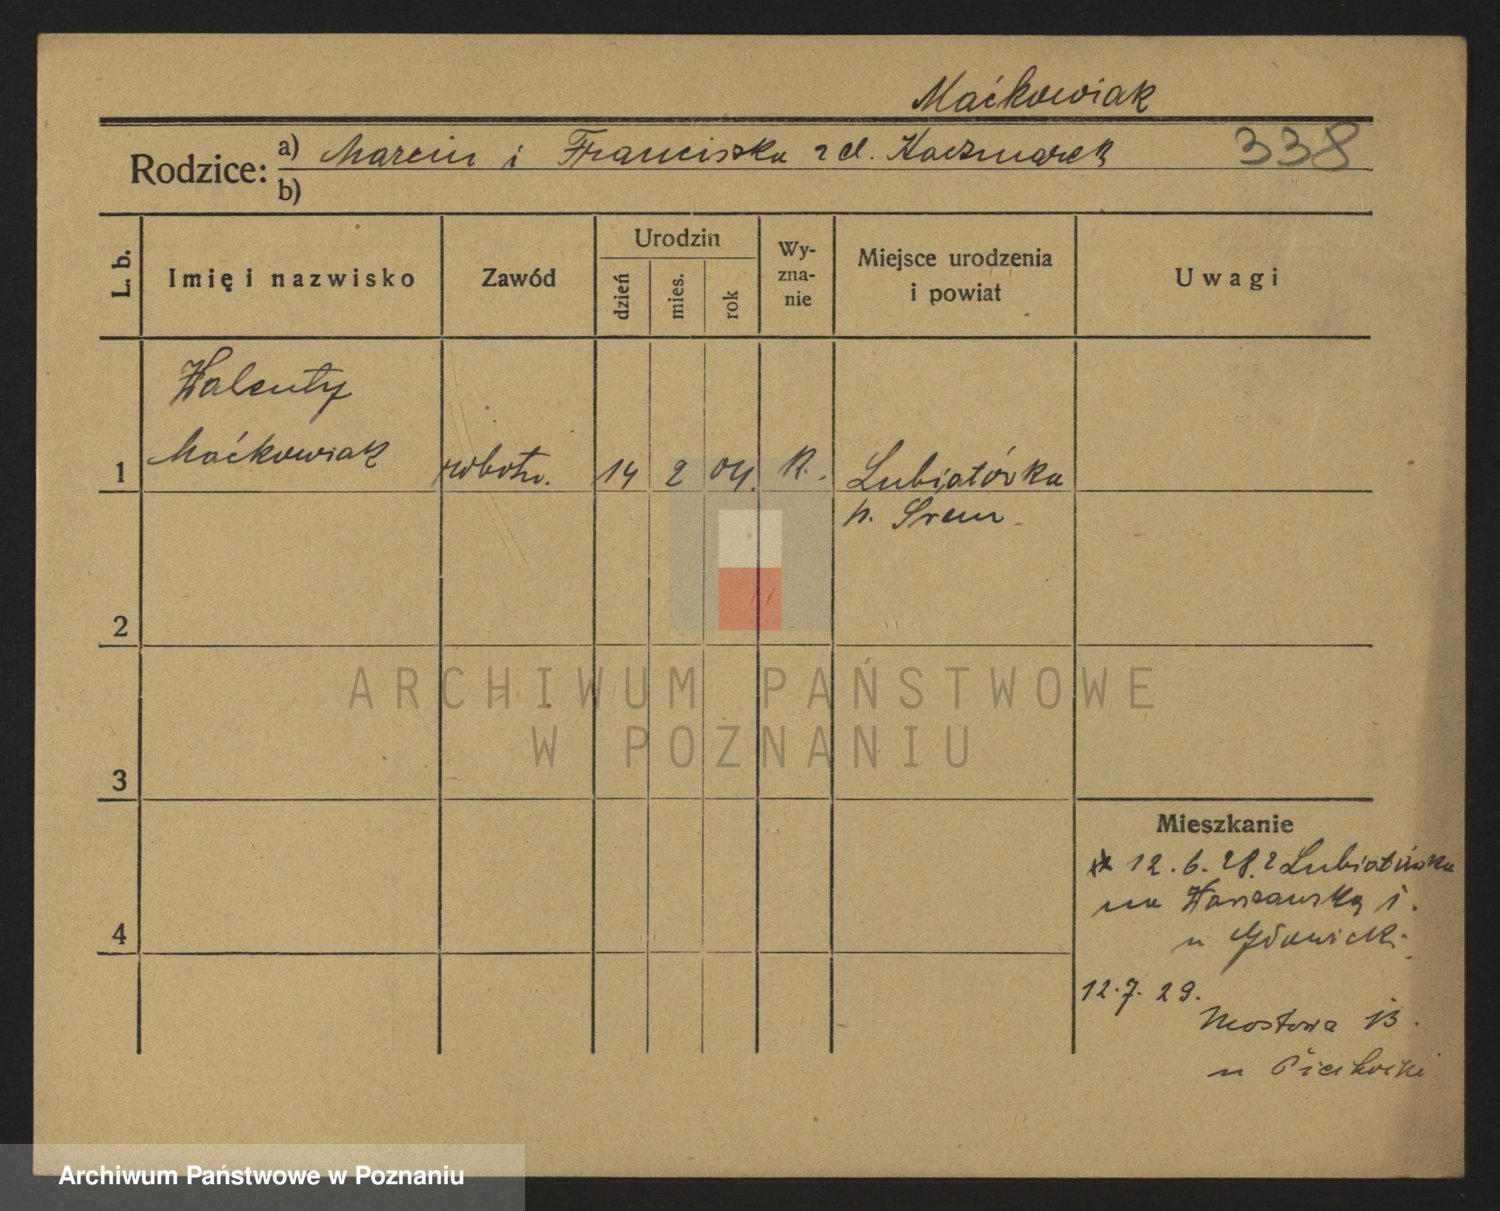 Maćkowiak
338
Rodzice: a) Marcin i Franciszka z d. Kaczmarek
b)
L. b.
Imię i nazwisko
Zawód
Urodzin
dzień
mies.
rok
Wy-
zna-
nie
Miejsce urodzenia
i powiat
Uwagi
Walenty
1 Maćkowiak robotn. 14 2 04. R. Lubiatówka
p. Śrem
2
3
4
ARCHIWUM PAŃSTWOWE
W POZNANIU
Mieszkanie
12.6.28. z Lubiatówka
na Warszawską 1.
u
12.7.29.
Mostowa 13.
u Piechocki
Archiwum Państwowe w Poznaniu